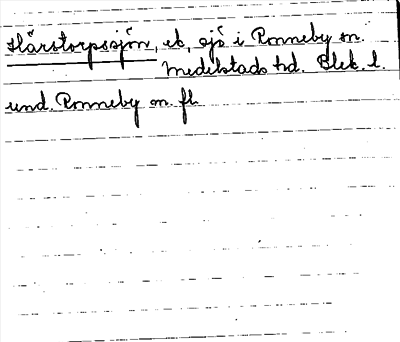 Härstorpssjön, et, sjö i Ronneby sn.
Medelstads hd. Blek. l.
und. Ronneby m. fl.